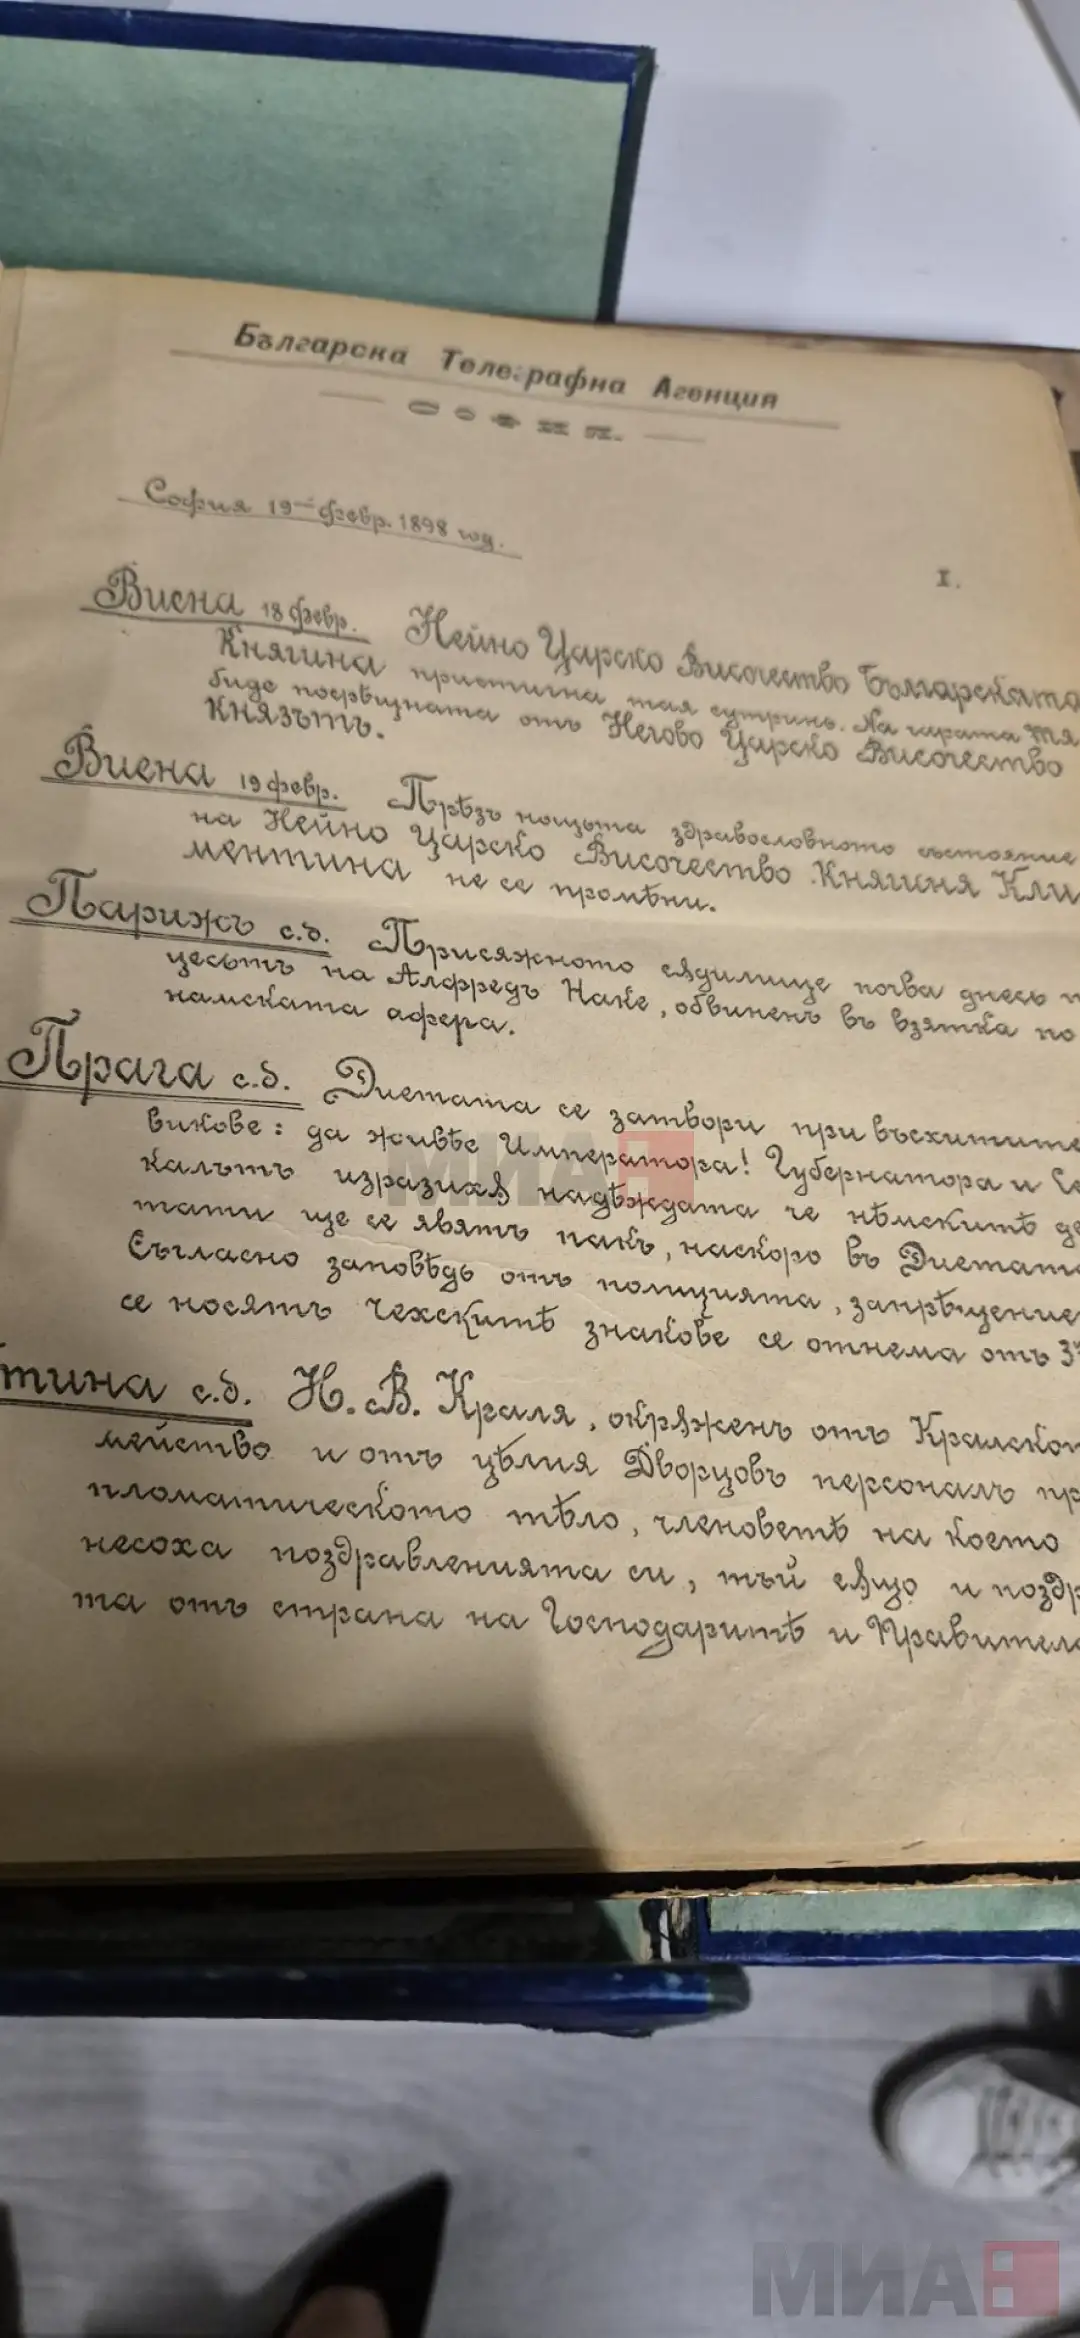 Българска Телеграфна Агенция
София.
София 19 февр. 1898 год.
I.
Виена 18 февр. Нейно Царско Височество Българската
Княгиня пристигна тая сутринь. На гарата тя
биде посрѣщната отъ Негово Царско Височество
Князътъ.
Виена 19 февр. Прѣзъ нощьта здравословното състояние
на Нейно Царско Височество Княгиня Кли
ментина не се промѣни.
Парижъ с.д. Присяжното сѫдилище почва днесь п
цесътъ на Алфредъ Наке, обвиненъ въ взятка по
намската афера.
Прага с.д. Диетата се затвори при въсхитите
викове: да живѣе Императора! Губернатора и Се
калътъ изразихѫ надѣждата че нѣмскитѣ де
тати ще се явятъ пакъ, наскоро въ Диетата
Съгласно заповѣдь отъ полицията, запрѣщение
се носятъ чехскитѣ знакове се отнема отъ
тина с.д. Н. В. Краля, окрѫженъ отъ Кралско
мейство и отъ цѣлия Дворцовъ персоналъ пр
пломатическото тѣло, членоветѣ на което
несоха поздравленията си, тъй сѫщо и поздр
та отъ страна на Господаритѣ и Правителс
МИА
МИА